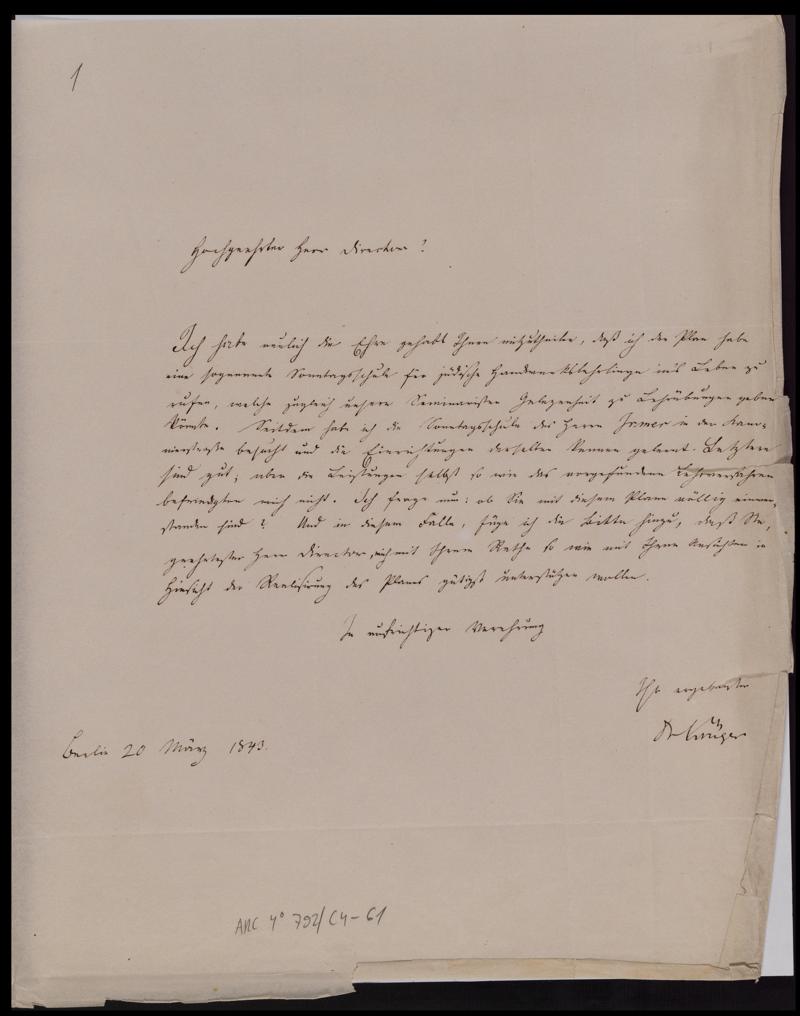 1
Hochgeehrter Herr Director!
Ich habe neulich die Ehre gehabt Ihnen mitzutheilen, daß ich den Plan habe
eine sogenannte Sonntagsschule für jüdische Handwerkslehrlinge ins Leben zu
rufen, welche zugleich unsern Seminaristen Gelegenheit zu Lehrübungen geben
könnte. Seitdem habe ich die Sonntagsschule des Herrn Irmer in der
besucht und die Einrichtungen derselben kennen gelernt. Letztere
sind gut; aber die Leistungen selbst so wie das vorgefundene Lehrverfahren
befriedigten mich nicht. Ich frage nun: ob Sie mit diesem Plane völlig einver-
standen sind? Und in diesem Falle, füge ich die Bitte hinzu, daß Sie,
geehrtester Herr Director, mich mit Ihrem Rathe so wie mit Ihren Ansichten in
Hinsicht der Realisirung des Planes gütigst unterstützen wollen.
In aufrichtiger Verehrung
Ihr ergebenster
Dr Krüger
Berlin 20 März 1843.
ARC 4° 792/C4-61